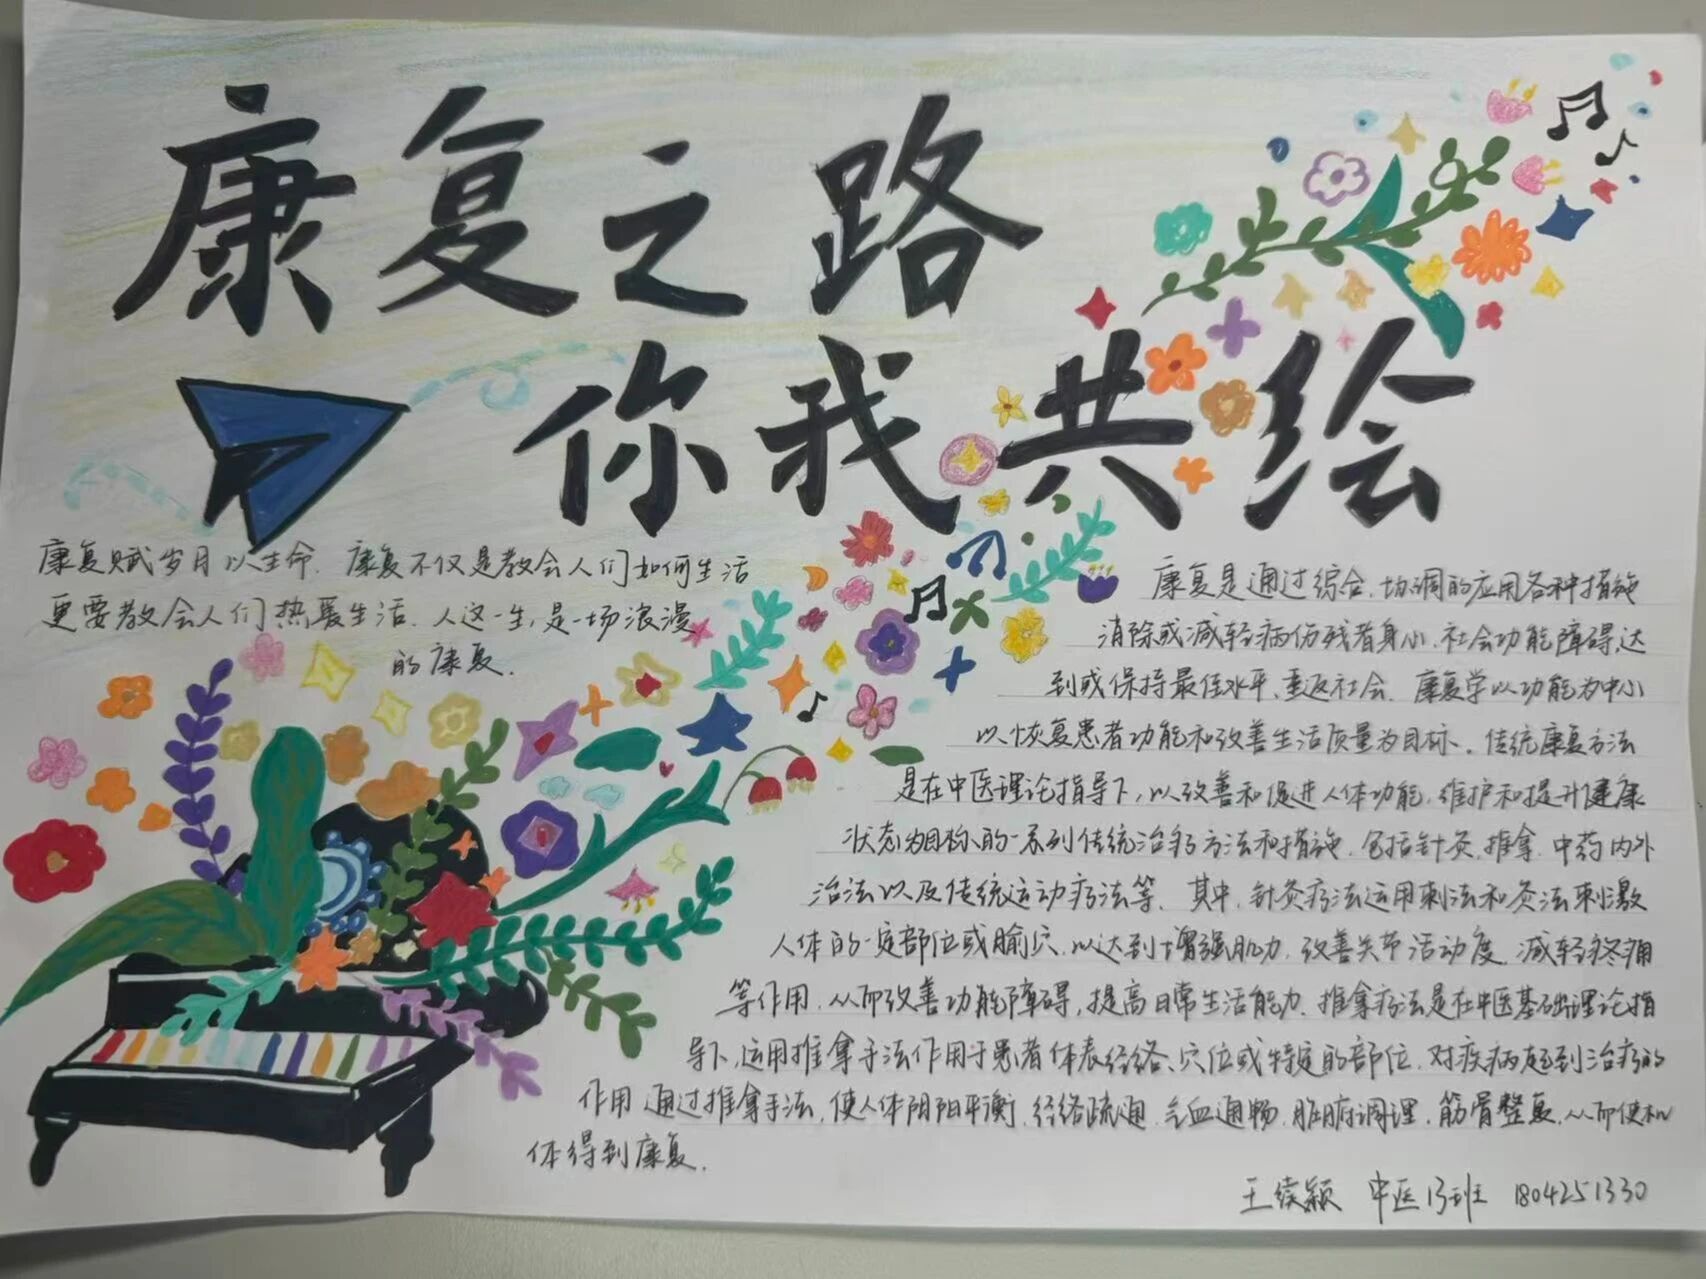 康复之路
你我共绘
康复赋岁月以生命.康复不仅是教会人们如何生活
更要教会人们热爱生活.人这一生,是一场浪漫
的康复.
康复是通过综合.协调的应用各种措施
消除或减轻病伤残者身心.社会功能障碍,达
到或保持最佳水平、重返社会.康复学以功能为中心
以恢复患者功能和改善生活质量为目标。传统康复方法
是在中医理论指导下,以改善和促进人体功能,维护和提升健康
状态为目标的一系列传统治疗方法和措施.包括针灸.推拿.中药内外
治法以及传统运动疗法等.其中.针灸疗法运用刺法和灸法刺激
人体的一定部位或腧穴.以达到增强肌力.改善关节活动度.减轻疼痛
等作用.从而改善功能障碍,提高日常生活能力.推拿疗法是在中医基础理论指
导下,运用推拿手法作用于患者体表经络、穴位或特定的部位.对疾病起到治疗的
作用.通过推拿手法,使人体阴阳平衡.经络疏通.气血通畅.脏腑调理.筋骨整复.从而使机
体得到康复.
王续颖 中医13班 1804251330